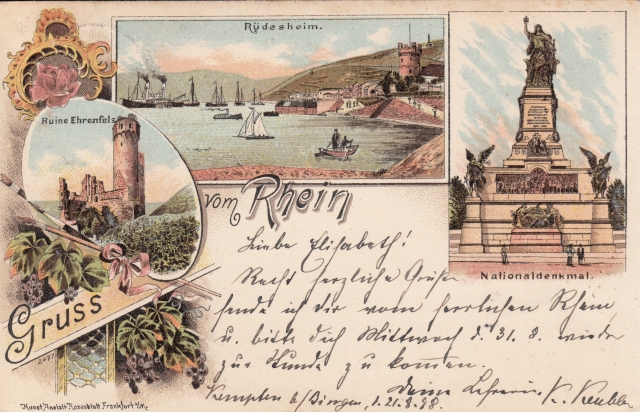 Rüdesheim.
Ruine Ehrenfels
Nationaldenkmal.
Gruss
vom Rhein
Liebe Elisabeth!
Recht herzliche Grüße
sende ich dir vom herrlichen Rhein
u. bitte dich Mittwoch d. 31. 8. wieder
zur Stunde zu kommen.
Deine Lehrerin K.
Kempten b/Bingen, 21.8.98.
Kunst-Anstalt Rosenblatt, Frankfurt a/M.